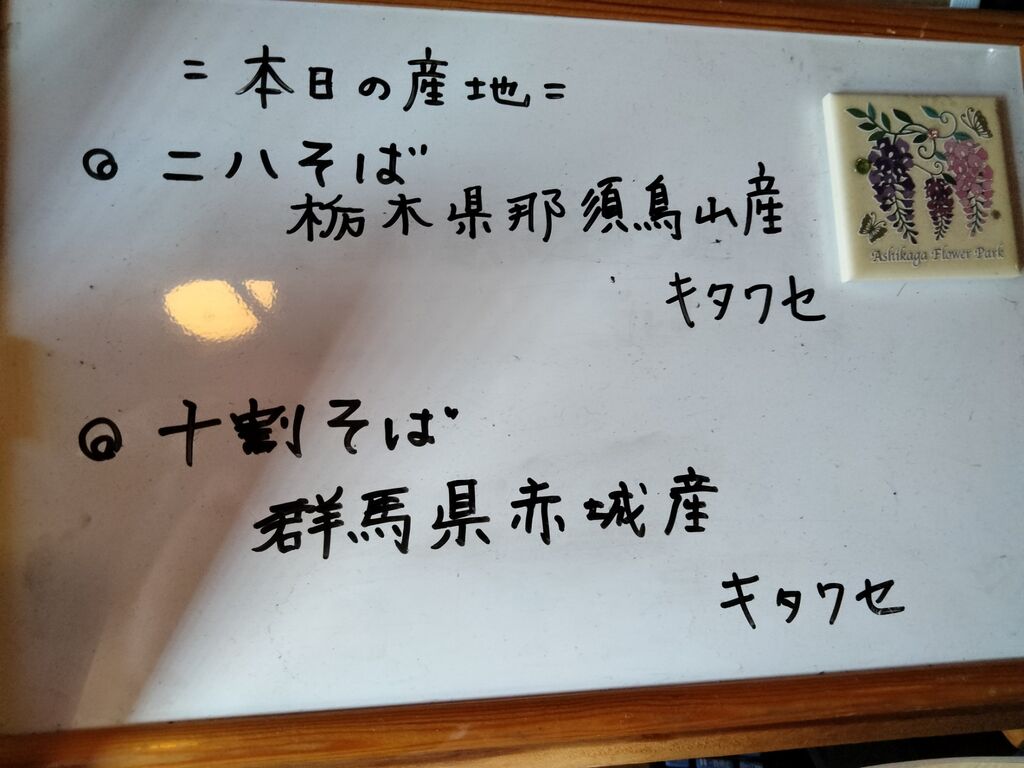 =本日の産地=
◎ 二八そば
栃木県那須烏山産
キタワセ
◎ 十割そば
群馬県赤城産
キタワセ
Ashikaga Flower Park